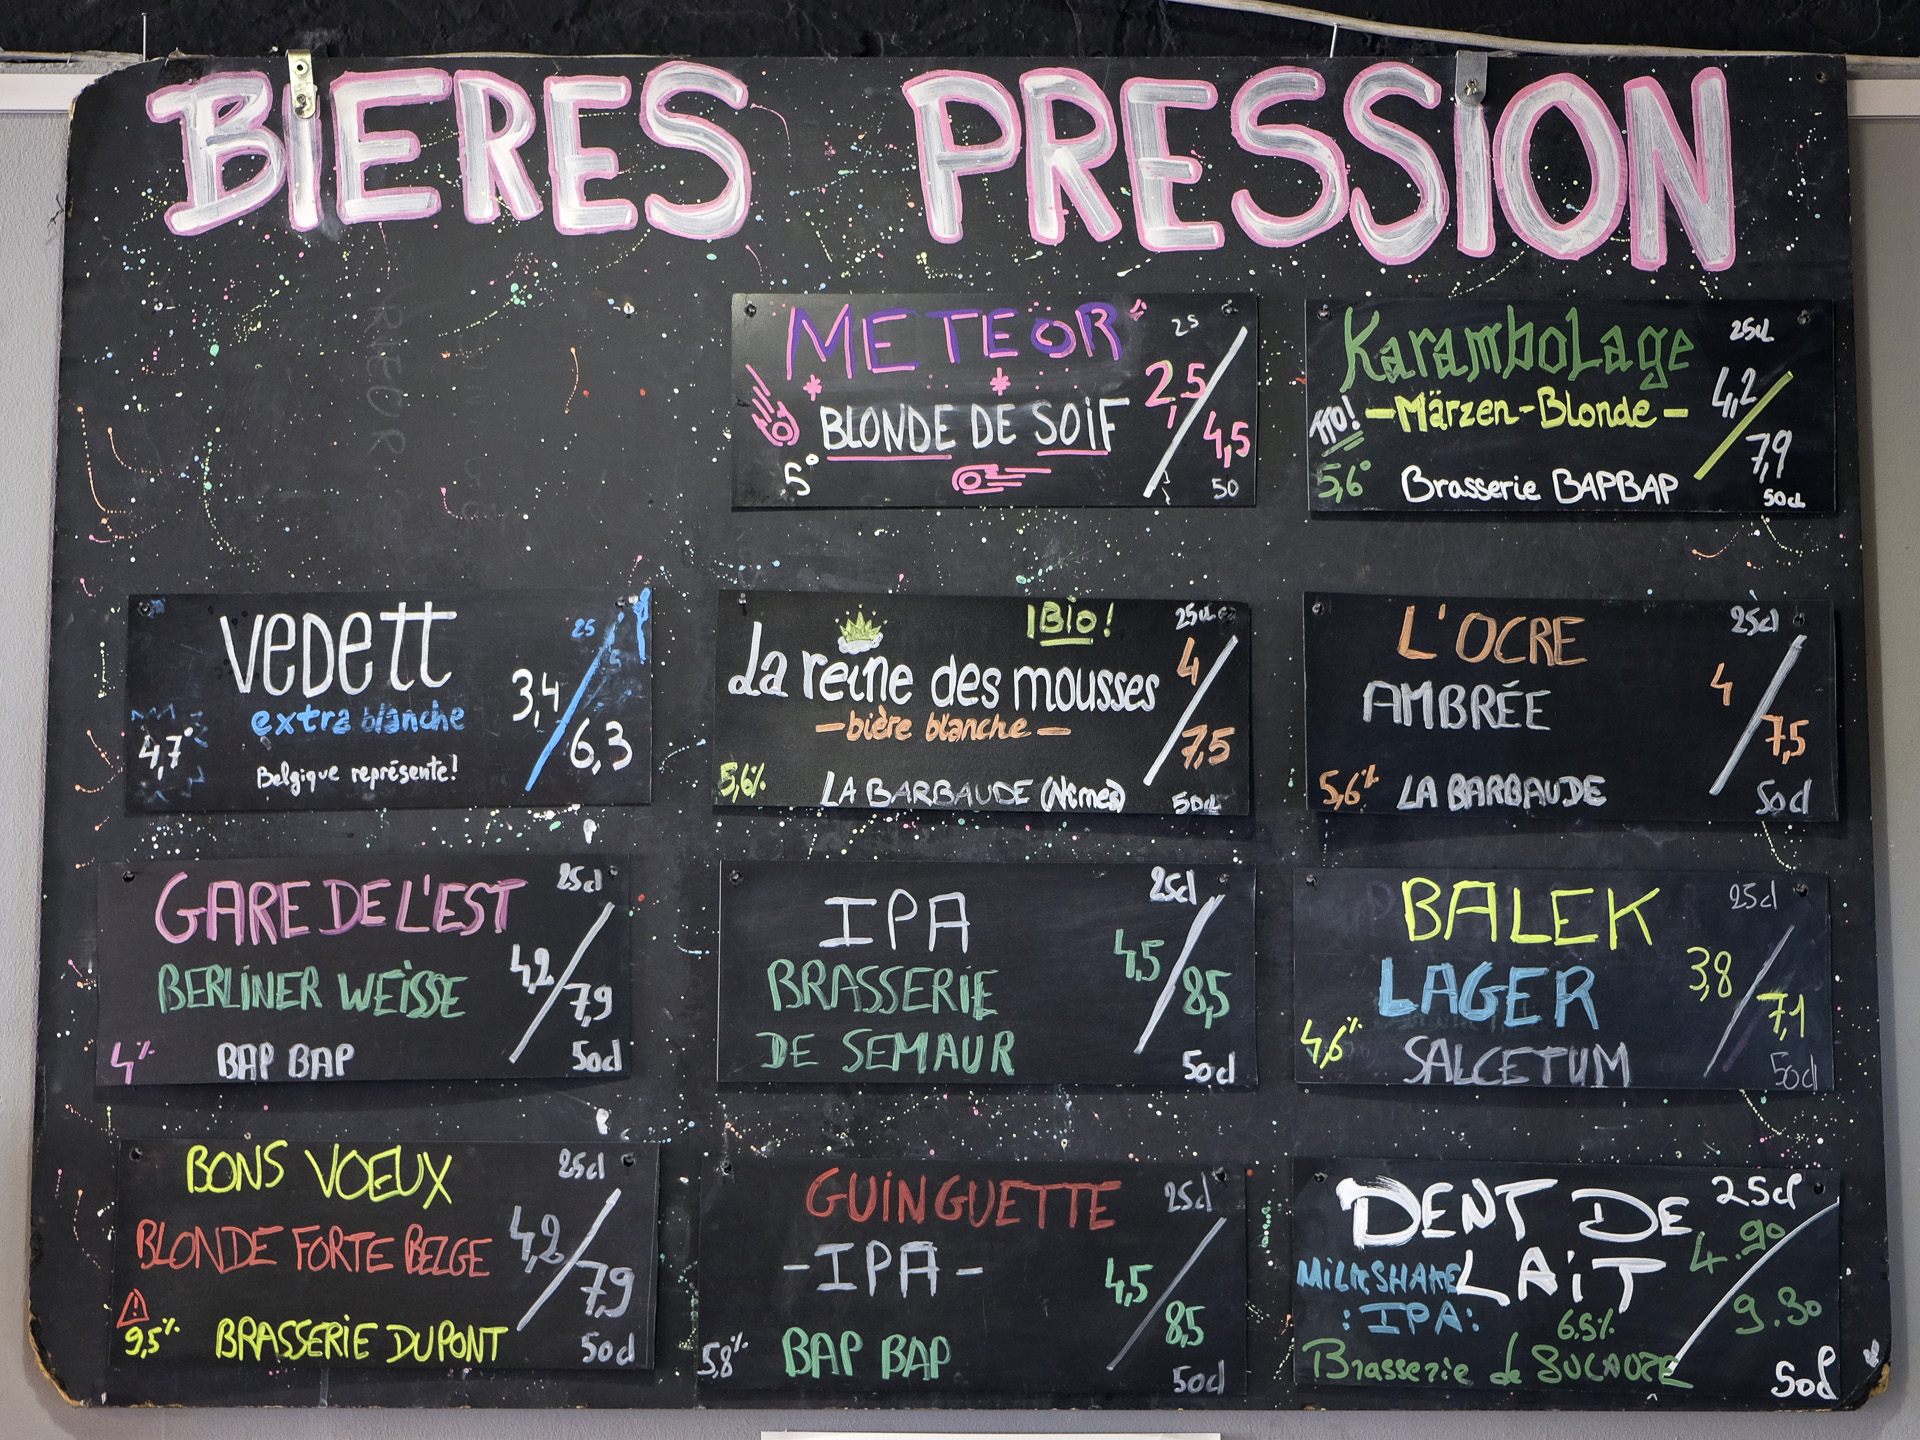 BIERES PRESSION
METEOR
25
2,5
BLONDE DE SOIF
4,5
5°
50
Karambolage
25cl
4,2
-Märzen-Blonde-
7,9
5,6°
Brasserie BAPBAP
50cl
VEDETT
25
3,4
extra blanche
6,3
4,7°
Belgique représente!
BIO!
25cl
La reine des mousses
4
-bière blanche-
7,5
5,6%
LA BARBAUDE (Nîmes)
50cl
L'OCRE
25cl
AMBRÉE
4
7,5
5,6%
LA BARBAUDE
50cl
GARE DE L'EST
25cl
BERLINER WEISSE
4,2
7,9
4%
BAP BAP
50cl
IPA
25cl
BRASSERIE
4,5
8,5
DE SEMAUR
50cl
BALEK
25cl
LAGER
3,8
7,1
4,6%
SALCETUM
50cl
BONS VOEUX
25cl
BLONDE FORTE BELGE
4,2
7,9
9,5%
BRASSERIE DUPONT
50cl
GUINGUETTE
25cl
-IPA-
4,5
8,5
5,8%
BAP BAP
50cl
DENT DE
25cl
LAIT
4.90
MILKSHAKE
:IPA:
6.5%
9.30
Brasserie de
50cl